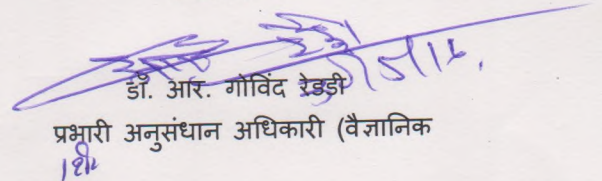 डॉ. आर. गोविंद रेड्डी
प्रभारी अनुसंधान अधिकारी (वैज्ञानिक